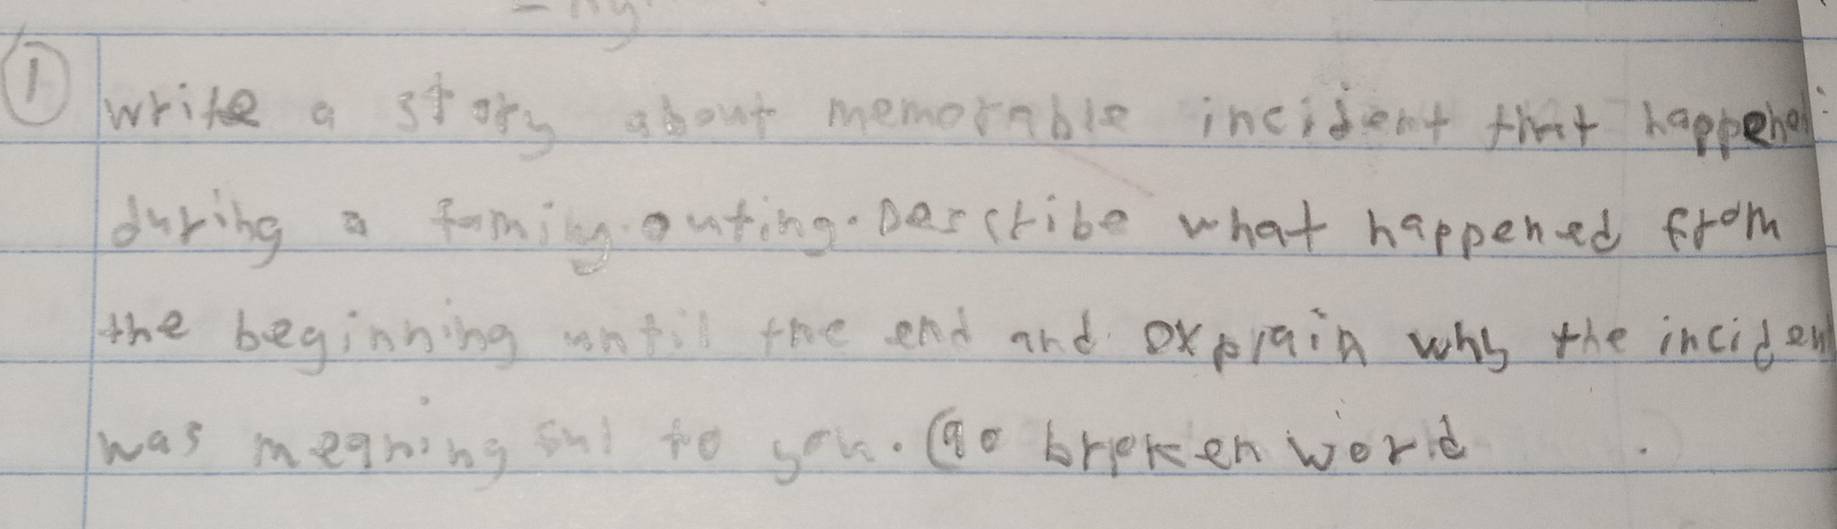 ①
write a story about memorable incident that happened
during a faming outing. Describe what happened from
the beginning until the end and explain why the inciden
was meaningful to you. (90 broken world